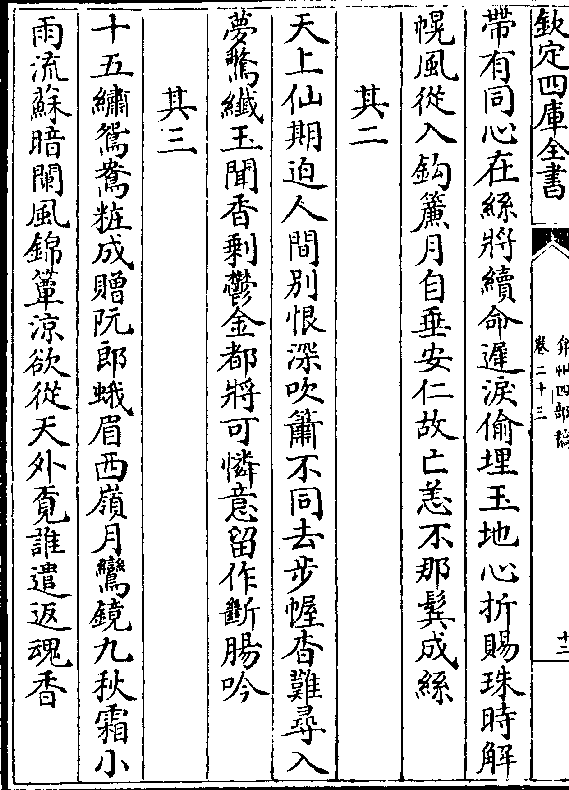 欽定四庫全書
弇州四部稿
卷二十三
十二
帶有同心在絲將續命遲淚偷埋玉地心折賜珠時解
幌風從入鈎簾月自垂安仁故亡恙不那鬂成絲
其二
天上仙期迫人間别恨深吹簫不同去步幄杳難尋入
夢驚纖玉聞香剩鬱金都將可憐意留作斷腸吟
其三
十五繡鴛鴦粧成贈阮郎蛾眉西嶺月鸞鏡九秋霜小
雨流蘇暗闌風錦簟涼欲從天外覔誰遣返魂香